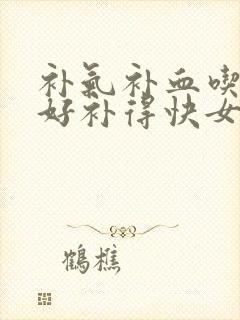 补气补血喫
好补得快女
鹤樵